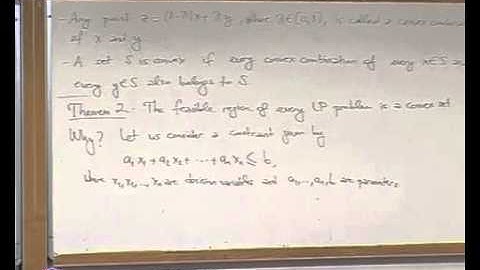 - Any point z = (1-λ)x + λy, where λ∈[0,1], is called a convex combination
of x and y
- A set S is convex if every convex combination of every x∈S and
every y∈S also belongs to S.
Theorem 2.- The feasible region of every LP problem is a convex set
Why? Let us consider a constraint given by
a₁x₁ + a₂x₂ + ··· + aₙxₙ ≤ b,
where x₁, x₂, ..., xₙ are decision variables and a₁, ..., aₙ, b are parameters.